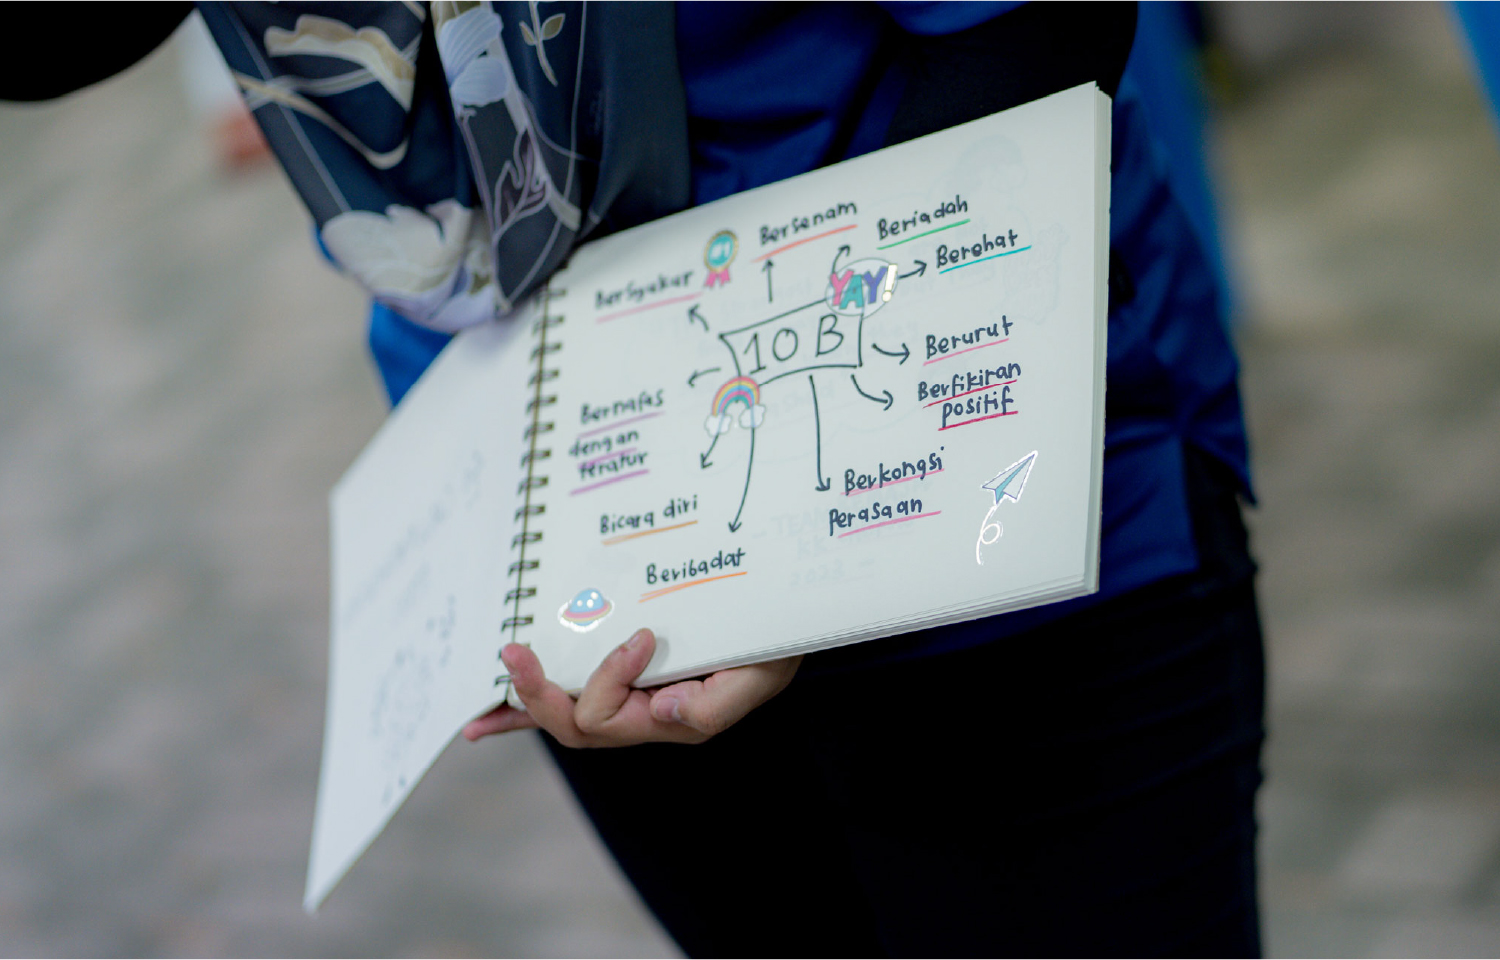 Bersenam
Beriadah
Berehat
Bersyukur
#1
YAY!
10 B
Berurut
Berfikiran
positif
Bernafas
dengan
teratur
Berkongsi
Perasaan
Bicara diri
Beribadat